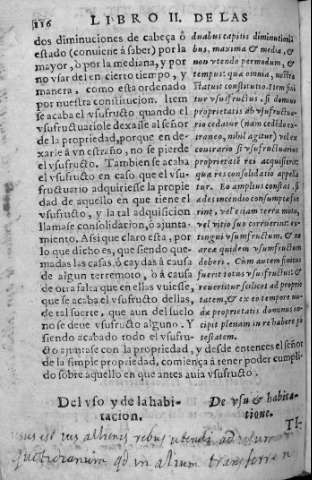 116 LIBRO II. DE LAS
dos diminuciones de cabeça ò
estado (conuiene à saber) por la
mayor, ò por la mediana, y por
no vsar del en cierto tiempo, y
manera, como esta ordenado
por nuestra constitucion. Item
se acaba el vsufructo quando el
vsufructuario le dexasse al señor
de la propriedad, porque en de-
xarle à vn estraño, no se pierde
el vsufructo. Tambien se acaba
el vsufructo en caso que el vsu-
fructuario adquiriesse la propie
dad de aquello en que tiene el
vsufructo, y la tal adquisicion
llamase consolidacion, ò ajunta-
miento. Assi que claro esta, por
lo que dicho es, que siendo que-
madas las casas, ò caydas à causa
de algun terremoto, ò à causa
de otra falta que en ellas vuiesse,
que se acaba el vsufructo dellas,
de tal suerte, que aun del suelo
no se deue vsufructo alguno. Y
siendo acabado todo el vsufru-
cto ajuntase con la propriedad, y desde entonces el señor
de la simple propiedad, comiença à tener poder cumpli
do sobre aquello en que antes auia vsufructo.
duabus capitis diminutioni
bus, maxima & media, &
non vtendo per modum, &
tempus: quæ omnia, nostra
statuit constitutio. Item fini
tur vsusfructus, si domino
proprietatis ab vsufructua-
rio cedatur (nam cedendo ex-
traneo, nihil agitur) vel ex
contrario si vsufructuarius
proprietatem rei acquisierit:
quæ res consolidatio appella
tur. Eo amplius constat, si
ædes incendio consumptæ fue
rint, vel etiam terræ motu,
vel vitio suo corruerint: ex-
tingui vsumfructum, & ne
areæ quidem vsumfructum
deberi. Cum autem finitus
fuerit totus vsusfructus:
reuertitur scilicet ad proprie
tatem, & ex eo tempore nu-
dæ proprietatis dominus in-
cipit plenam in re habere po
testatem.
Del vso y de la habi-
tacion.
De vsu & habita-
tione.
TI-
usus est ius alienis rebus utendi ad usum
qd in alium transferre n